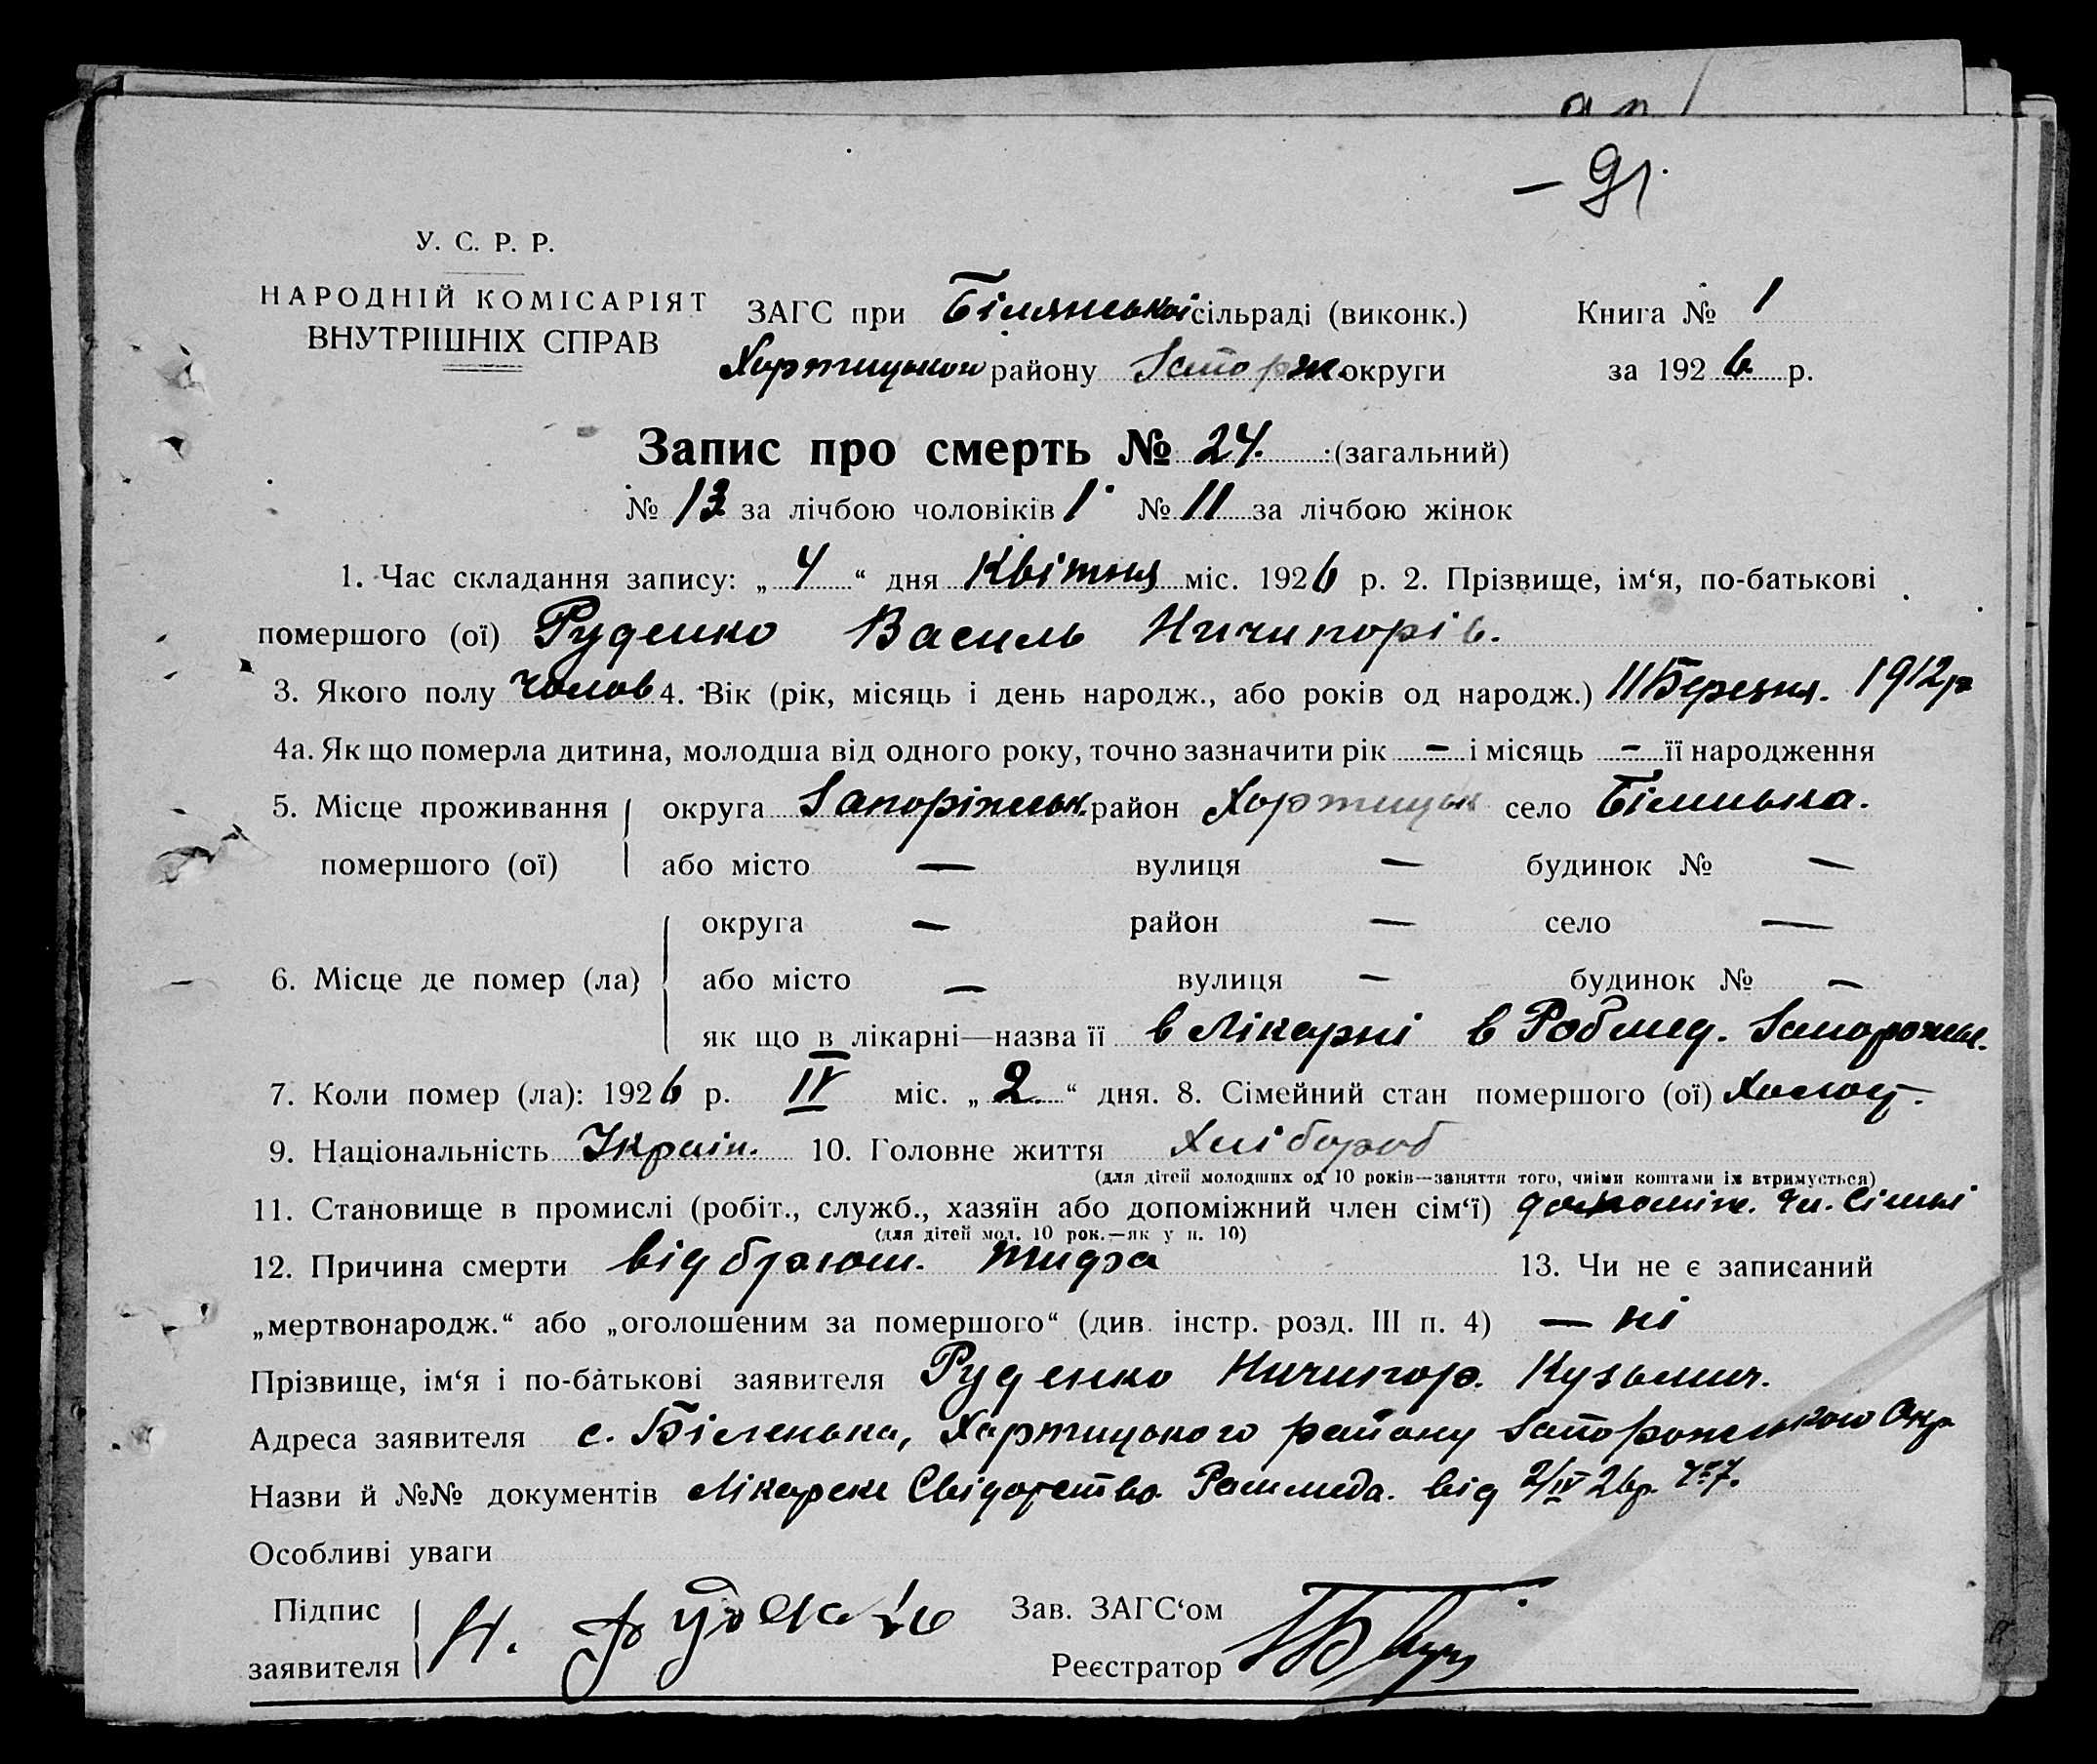 — 91.
У. С. Р. Р.
НАРОДНІЙ КОМІСАРІЯТ
ВНУТРІШНІХ СПРАВ
ЗАГС при Білянській сільраді (виконк.) Книга № 1
Хортицького району Запорж. округи за 1926 р.
Запис про смерть № 24. (загальний)
№ 13 за лічбою чоловіків 1 № 11 за лічбою жінок
1. Час складання запису: „4“ дня Квітня міс. 1926 р. 2. Прізвище, ім‘я, по-батькові
помершого (ої) Руденко Василь Ничипорів.
3. Якого полу чолов 4. Вік (рік, місяць і день народж., або років од народж.) 11 Березня. 1912 р
4а. Як що померла дитина, молодша від одного року, точно зазначити рік — і місяць — її народження
5. Місце проживання округа Запоріжськ. район Хортицьк село Біленька.
помершого (ої) або місто — вулиця — будинок № —
округа — район — село —
6. Місце де помер (ла) або місто — вулиця — будинок № —
як що в лікарні—назва її в Лікарні в Робмед. Запорожж.
7. Коли помер (ла): 1926 р. IV міс. „2“ дня. 8. Сімейний стан помершого (ої) Холост.
9. Національність Україн. 10. Головне життя Хлібороб
(для дітей молодших од 10 років—заняття того, чиїми коштами їх втримується)
11. Становище в промислі (робіт., служб., хазяїн або допоміжний член сім‘ї) допоміж. чл. сімьі
(для дітей мол. 10 рок.—як у п. 10)
12. Причина смерти від брюшн. тифа 13. Чи не є записаний
„мертвонародж.“ або „оголошеним за помершого“ (див. інстр. розд. III п. 4) — ні
Прізвище, ім‘я і по-батькові заявителя Руденко Ничипор. Кузьмич.
Адреса заявителя с. Біленька, Хортицького району Запорожського Окр.
Назви й №№ документів Лікарське Свідоцтво від 2/IV 26 р. 7.
Особливі уваги
Підпис
заявителя Н. Руденко
Зав. ЗАГС‘ом
Реєстратор